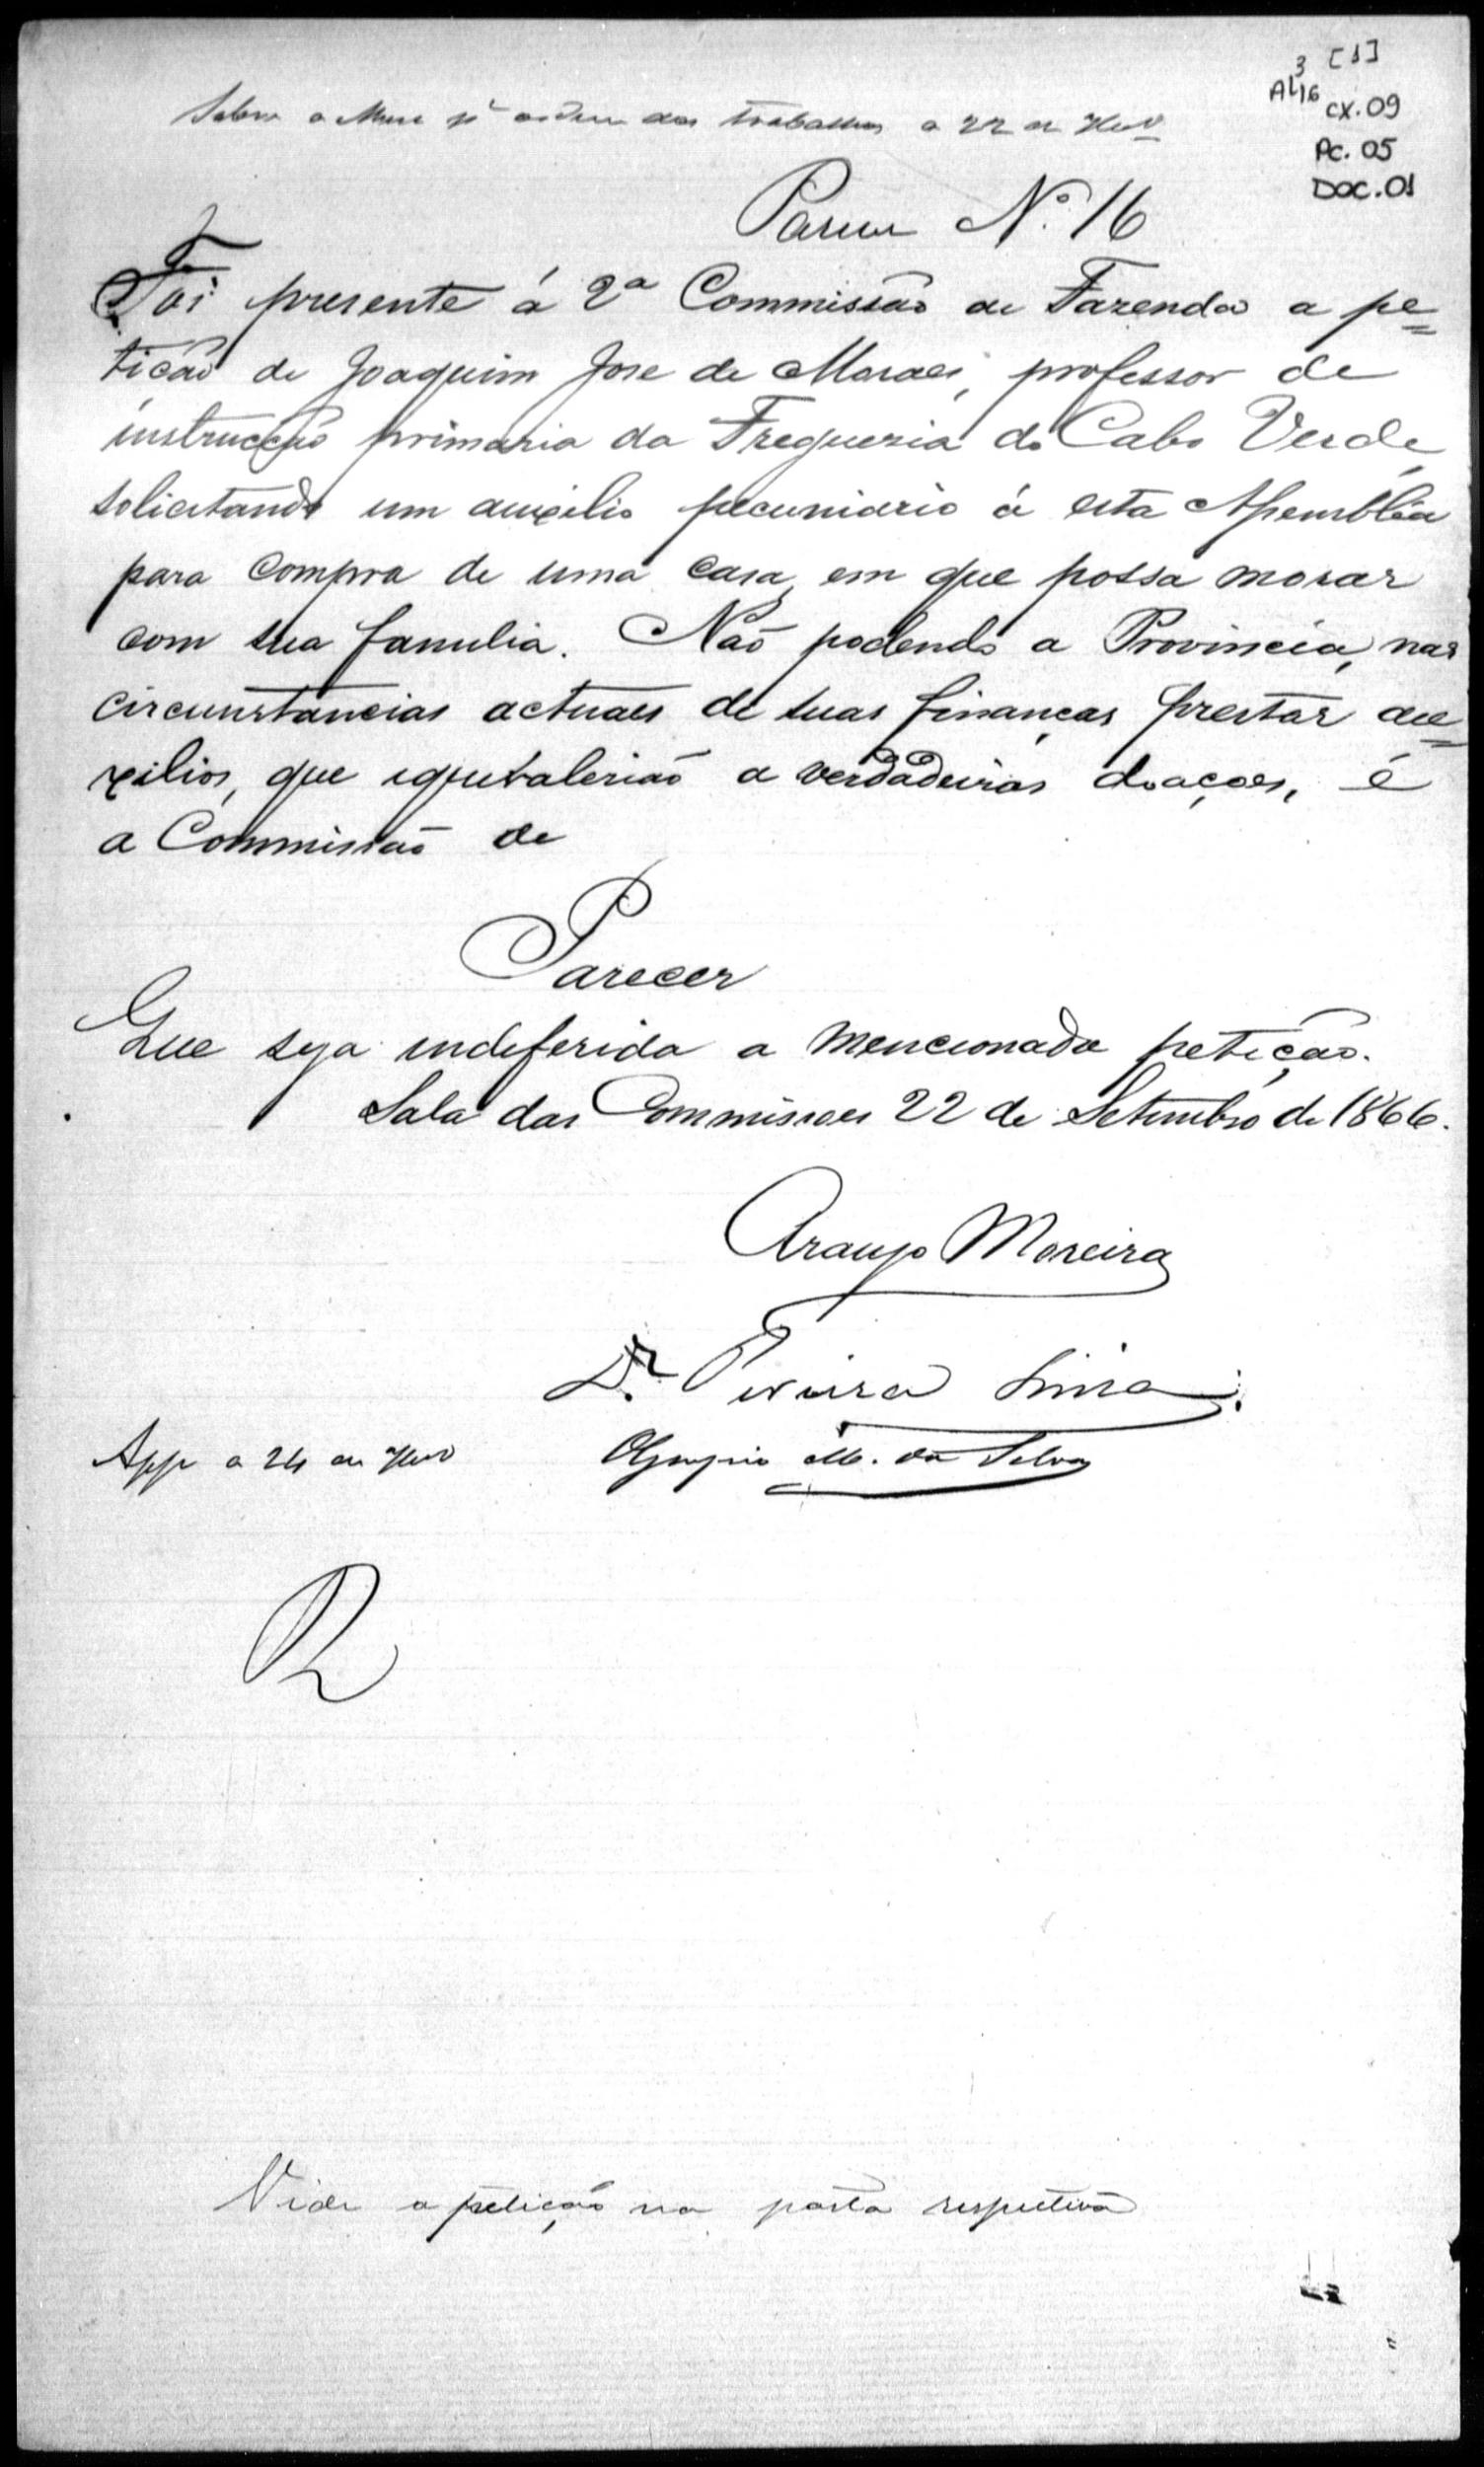 3 [1]
AL16
CX.09
PC.05
DOC.01
Sobre a Mesa pª ordem dos trabalhos a 22 de 7bro
Parecer Nº 16
Foi presente á 2ª Commissão de Fazenda a pe=
tição de Joaquim Jose de Moraes, professor de
instrucção primaria da Freguezia do Cabo Verde,
solicitando um auxilio pecuniario á esta Assemblea
para compra de uma casa, em que possa morar
com sua familia. Não podendo a Provincia, nas
circunstancias actuaes de suas finanças prestar au=
xilios, que equivalerião a verdadeiras doações, é
a Commissão de
Parecer
Que seja indeferida a mencionada petição.
Sala das Commissoes 22 de Setembro de 1866.
Araujo Moreira
Dr. Teixeira
Olympio M. da Silva
App a 24 de 7bro
Vide a petição na pasta respectiva